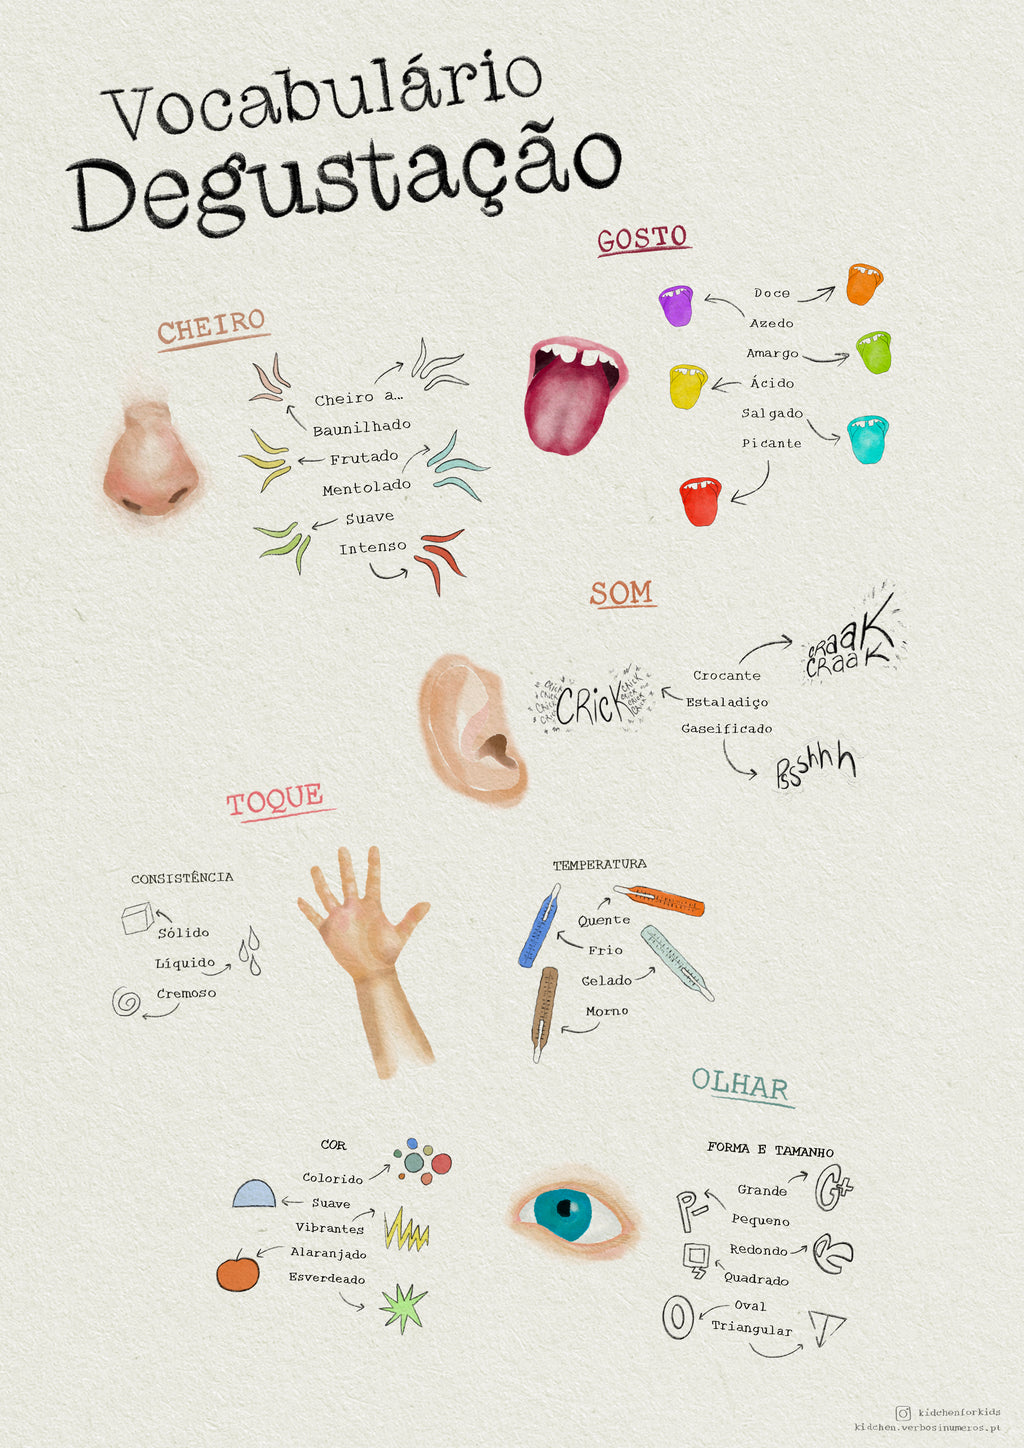 Vocabulário
Degustação
GOSTO
Doce
Azedo
Amargo
Ácido
Salgado
Picante
CHEIRO
Cheiro a…
Baunilhado
Frutado
Mentolado
Suave
Intenso
SOM
Crocante
Estaladiço
Gaseificado
CRAAK
CRAAK
CRICK
Pssshhh
TOQUE
CONSISTÊNCIA
Sólido
Líquido
Cremoso
TEMPERATURA
Quente
Frio
Gelado
Morno
OLHAR
COR
Colorido
Suave
Vibrantes
Alaranjado
Esverdeado
FORMA E TAMANHO
Grande
Pequeno
Redondo
Quadrado
Oval
Triangular
G+
P-
kidchenforkids
kidchen.verbosinumeros.pt